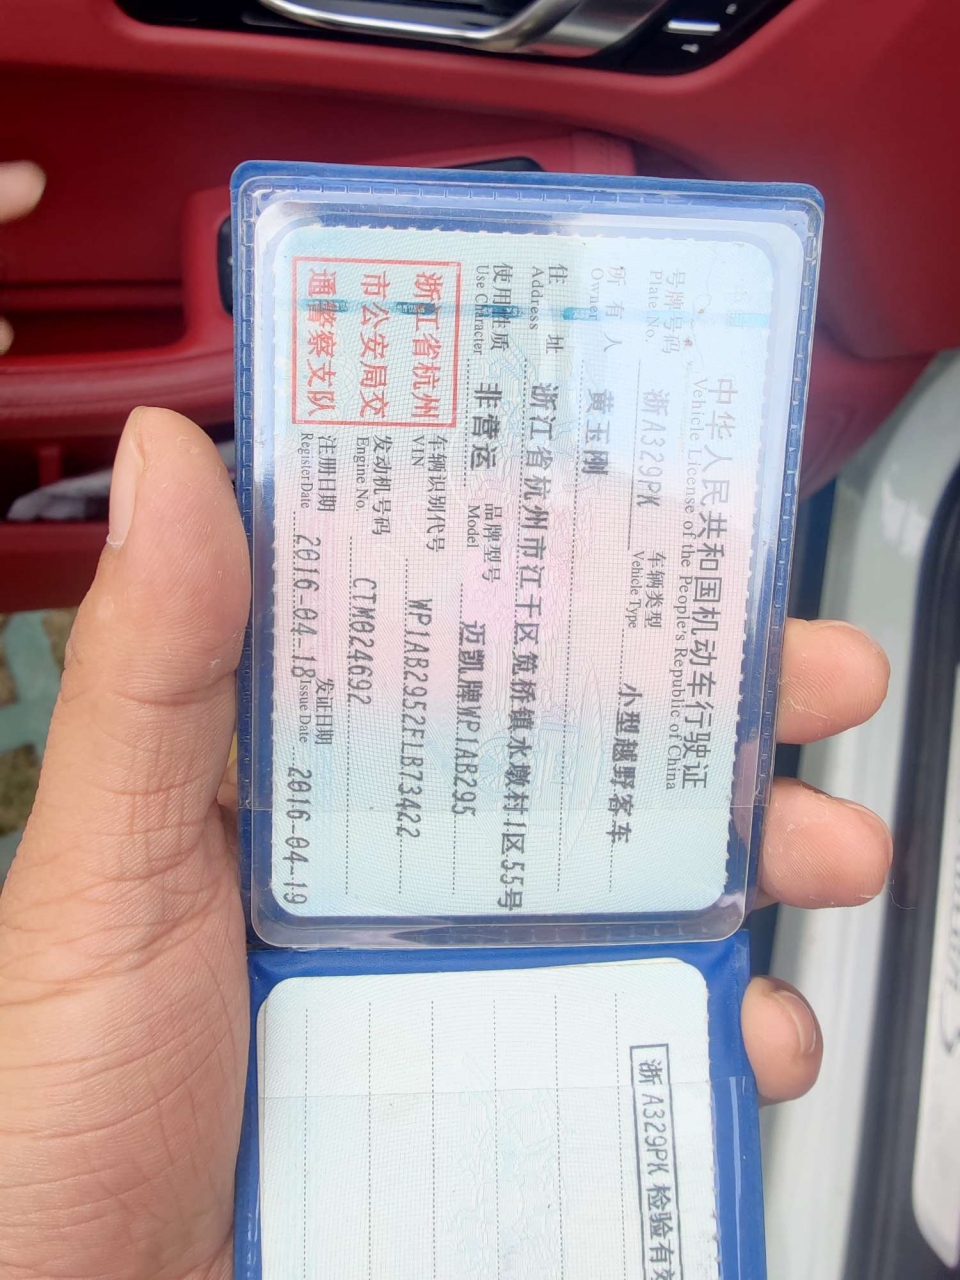 中华人民共和国机动车行驶证
Vehicle License of the People's Republic of China
号牌号码 浙A329PK 车辆类型 小型越野客车
Plate No. Vehicle Type
所有人 黄玉刚
Owner
住址 浙江省杭州市江干区笕桥镇水墩村1区55号
Address
使用性质 非营运 品牌型号 迈凯牌WP1AB295
Use Character Model
浙江省杭州
市公安局交
通警察支队
车辆识别代号 WP1AB2952ELB73422
VIN
发动机号码 CTM024692
Engine No.
注册日期 2016-04-18 发证日期 2016-04-19
Register Date Issue Date
浙A329PK 检验有效